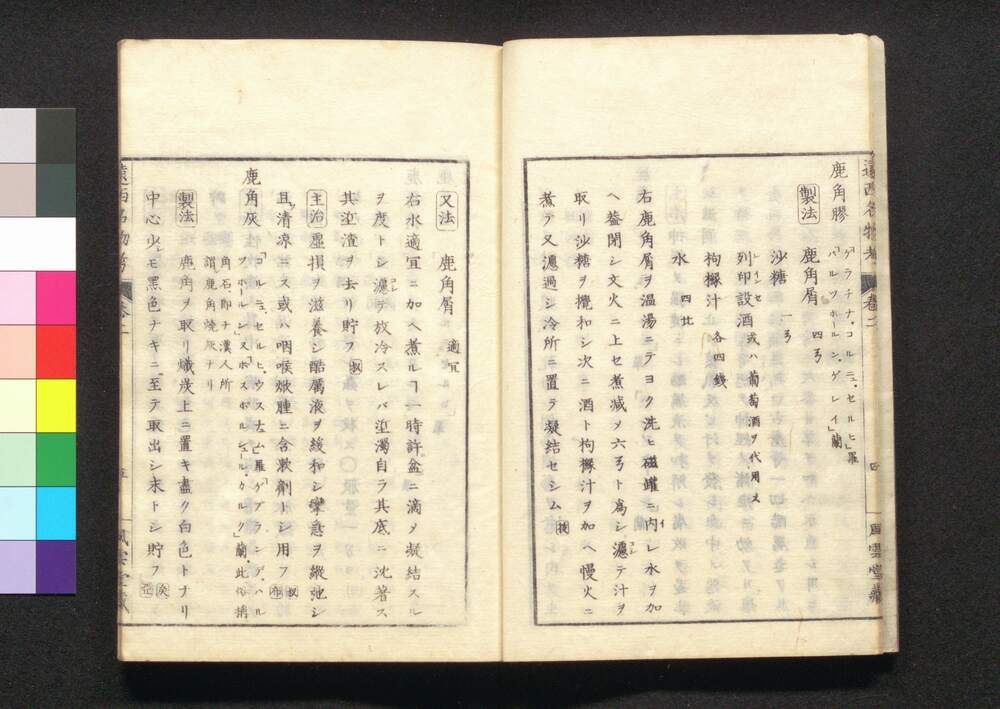 遠西名物考 卷二 四 風雲堂藏
鹿角膠 「ゲラチナ、コルニュ、セルヒ」羅
「ハルツホールン、ゲレイ」蘭
製法 鹿角屑 四弓
沙糖 一弓
列印設酒 或ハ葡萄酒ヲ代用ス
レインセ
枸櫞汁 各四錢
水 四
右鹿角屑ヲ温湯ニテヨク洗ヒ磁罐ニ内レ水ヲ加
へ蓋閉シ文火ニ上セ煮减メ六弓ト爲シ濾テ汁ヲ
取リ沙糖ヲ攪和シ次ニ酒ト枸櫞汁ヲ加へ慢火ニ
煮テ又濾過シ冷所ニ置テ凝結セシム
又法 鹿角屑 適宜
右水適宜ニ加へ煮ルヿ一時許盆ニ滴メ凝結スル
ヲ度トシ濾ヲ放冷スレバ垽濁自ラ其底ニ沈著ス
其垽渣ヲ去リ貯フ
主治 虛損ヲ滋養シ酷厲液ヲ緩和シ攣急ヲ縱弛シ
且清凉ニス或ハ咽喉焮腫ニ含漱劑トシ用フ
鹿角灰 「コルニュ、セルヒ、ウスチュム」羅「ゲブランデ、ハル
ツホールン」「スポンスポルシュール、カルク」蘭、此俗稱
角石、即チ漢人所
謂鹿角燒灰ナリ
製法 鹿角ヲ取リ熾炭上ニ置キ盡ク白色トナリ
中心少シモ黑色ナキニ至テ取出シ末トシ貯フ
遠西名物考 卷二 五 風雲堂藏